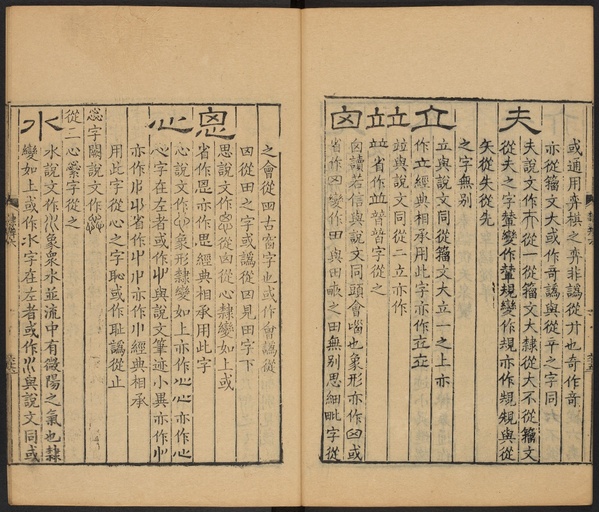 或通用弈棋之弈非譌從廾也奇作竒
亦從籀文大或作竒譌與從辛之字同
夫
夫說文作 從一從籀文大隸從大不從籀文
從夫之字輦變作輦規變作規亦作規規與從
矢從失從先
之字無別
立
立與說文同從籀文大立一之上亦
作立經典相承用此字亦作
竝
竝與說文同從二立亦作
竝省作並普普字從之
囟
囟讀若信與說文同頭會匘也象形亦作 或
省作囟變作田與田畝之田無別思細毗字從
之會從 古窗字也或作會譌從
囚從田之字或譌從四見田字下
恖
思說文作 從囟從心隸變如上或
省作恩亦作思經典相承用此字
心
心說文作 象形隸變如上亦作 亦作心
心字在左者或作 與說文筆迹小異亦作
亦作 省作 亦作 經典相承
用此字從心之字恥或作耻譌從止
惢字闕說文作
從三心縈字從之
水
水說文作 象眾水並流中有微陽之气也隸
變如上或作水字在左者或作 與說文同或